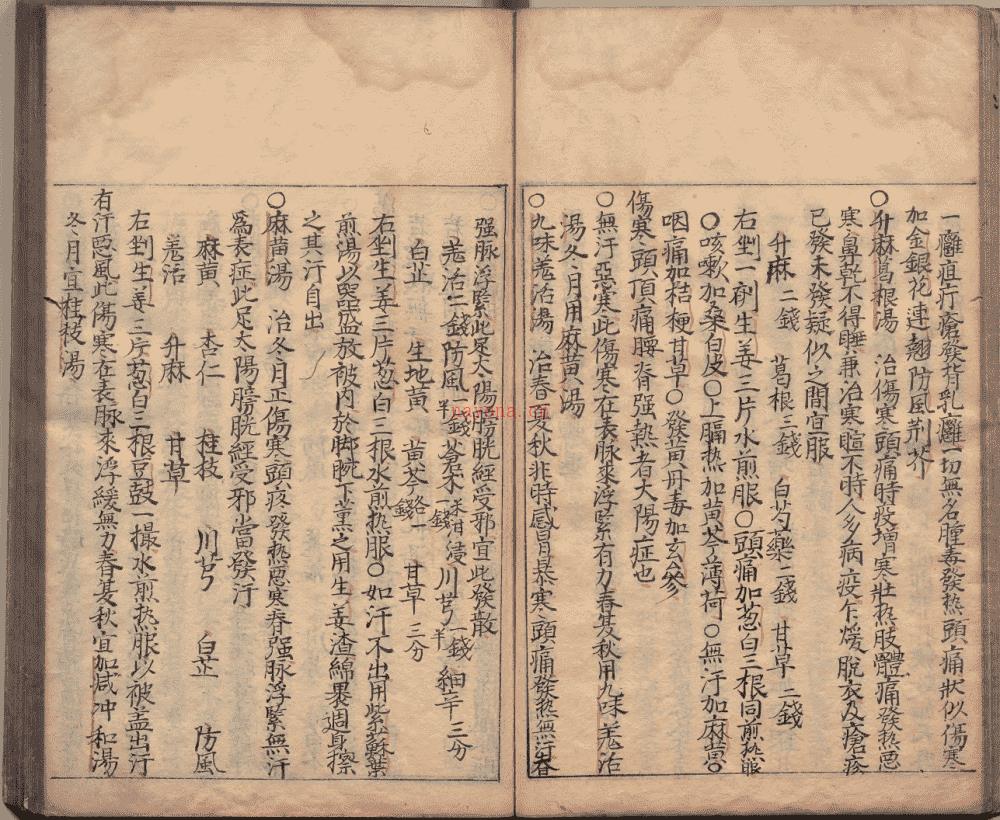 一癰疽疔瘡發背乳癰一切無名腫毒發热頭痛狀似傷寒
加金銀花連翹防風荆芥
〇升麻葛根湯　治傷寒頭痛時疫增寒壯热肢體痛發热恶
寒鼻乾不得睡兼治寒暄不時人多病疫乍煖脫衣及瘡疹
已發未發疑似之間宜服
升麻二錢　葛根三錢　白芍藥二錢　甘草二錢
右剉一剤生姜三片水煎服〇頭痛加葱白三根同煎热服
〇咳嗽加桑白皮〇上膈热加黄芩薄荷〇無汗加麻黄〇
咽痛加桔梗甘草〇發黄丹毒加玄參
傷寒頭頂痛腰脊强热者太陽症也
〇無汗惡寒此傷寒在表脉來浮緊有力春夏秋用九味羗活
湯冬月用麻黄湯
〇九味羗活湯　治春夏秋非時感冒暴寒頭痛發热無汗脊
强脉浮緊此足太陽膀胱經受邪宜此發散
羗活二錢防風一錢半蒼朮一錢米泔浸川芎一錢半細辛三分
白芷　生地黄　黄芩各一錢　甘草三分
右剉生姜三片葱白三根水煎热服〇如汗不出用紫蘇葉
煎湯以噐盛放被內於脚腕下薰之用生姜渣綿裹週身擦
之其汗自出
〇麻黄湯　治冬月正傷寒頭疼發热恶寒脊强脉浮緊無汗
爲表症此足太陽膀胱經受邪當發汗
麻黄　杏仁　桂枝　川芎　白芷　防風
羗活　升麻　甘草
右剉生姜三片葱白三根豆鼓一撮水煎热服以被盖出汗
有汗恶風此傷寒在表脉來浮緩無力春夏秋宜加减冲和湯
冬月宜桂枝湯
nayona.cn